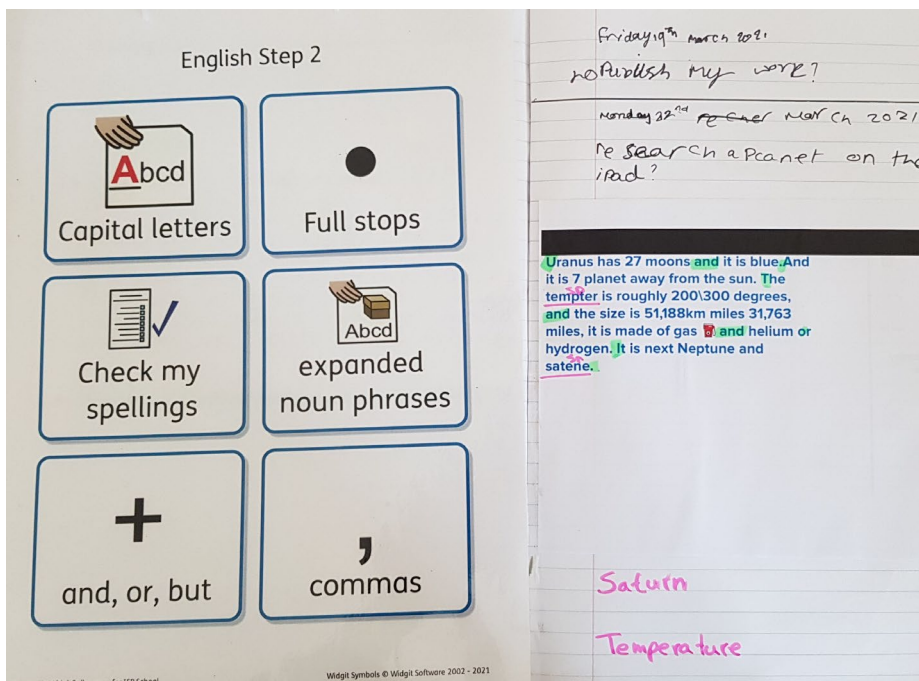 English Step 2
Abcd
Capital letters
Full stops
Check my
spellings
Abcd
expanded
noun phrases
+
and, or, but
,
commas
Widgit Symbols © Widgit Software 2002 - 2021
Friday 19th March 2021
to Publish my work?
Monday 22nd March 2021
research a pcanet on the
ipad?
Uranus has 27 moons and it is blue.And
it is 7 planet away from the sun. The
sp
tempter is roughly 200\300 degrees,
and the size is 51,188km miles 31,763
miles, it is made of gas and helium or
hydrogen. It is next Neptune and
sp
satene.
Saturn
Temperature